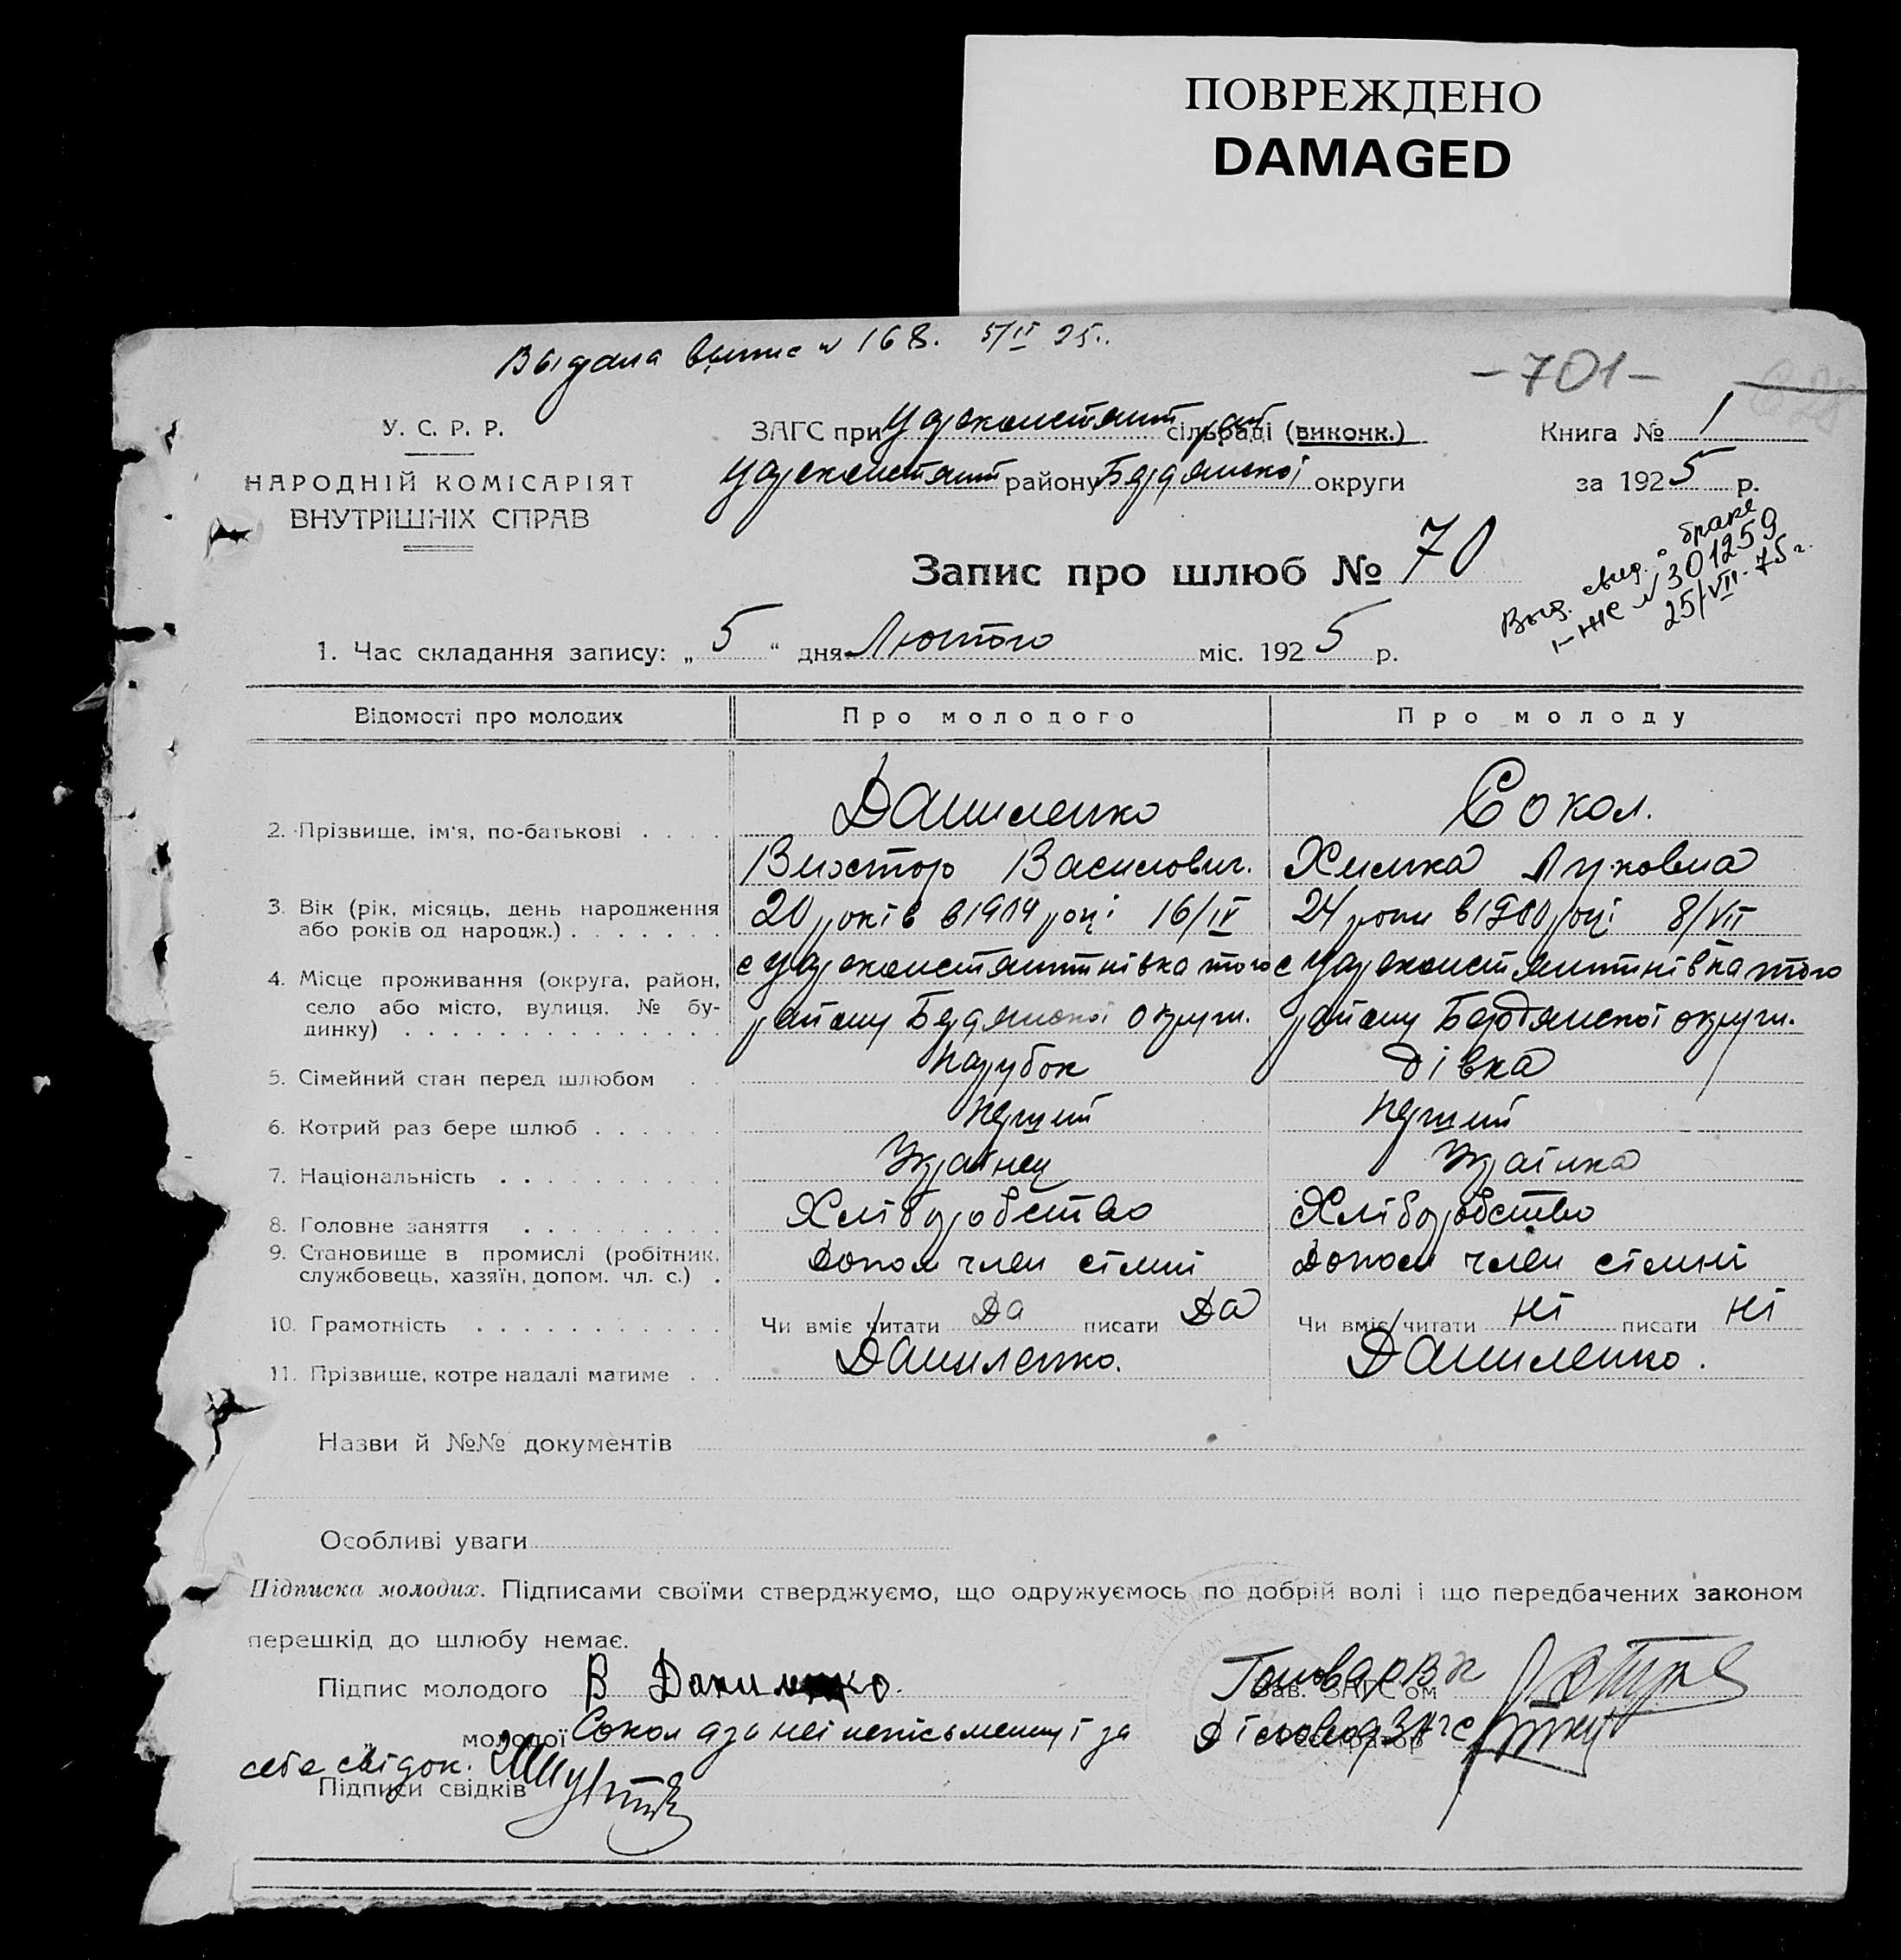 ПОВРЕЖДЕНО
DAMAGED
Выдана выпис № 168. 5/II 25.
- 701 -
У. С. Р. Р.
НАРОДНІЙ КОМІСАРІЯТ
ВНУТРІШНІХ СПРАВ
ЗАГС при Цареконстант рай сільраді (виконк.)
Цареконстант району Бердянської округи
Книга № 1
за 1925 р.
Выд. свид. о браке
І-ЖС № 301259
25/VII-75 г.
Запис про шлюб № 70
1. Час складання запису: „ 5 “ дня Лютого міс. 1925 р.
Відомості про молодих
Про молодого
Про молоду
2. Прізвище, ім'я, по-батькові . . . .
Даниленко
Виктор Василович.
Сокол.
Химка Луковна
3. Вік (рік, місяць, день народження
або років од народж.) . . . . . . .
20 років в 1904 році 16/IV
24 роки в 1900 році 8/VII
4. Місце проживання (округа, район,
село або місто, вулиця. № бу-
динку) . . . . . . . . . . . . .
с Цареконстянтинівка того
району Бердянської округи.
с Цареконстянтинівка того
району Бердянської округи.
5. Сімейний стан перед шлюбом . .
Парубок
дівка
6. Котрий раз бере шлюб . . . . . .
Перший
Перший
7. Національність . . . . . . . . . .
Українец
Українка
8. Головне заняття . . . . . . . . .
Хліборобство
Хліборобство
9. Становище в промислі (робітник,
службовець, хазяїн, допом. чл. с.) .
Допом член сімиї
Допом член сімиї
10. Грамотність . . . . . . . . . . .
Чи вміє читати Да писати Да
Чи вміє читати Ні писати Ні
11. Прізвище, котре надалі матиме . .
Даниленко.
Даниленко.
Назви й №№ документів
Особливі уваги
Підписка молодих. Підписами своїми стверджуємо, що одружуємось по добрій волі і що передбачених законом
перешкід до шлюбу немає.
Підпис молодого В Даниленко.
Зав. ЗАГС'ом
„ молодої Сокол а за неї неписьменну і за
себе свідок.
Діловод ЗАГС
Підписи свідків